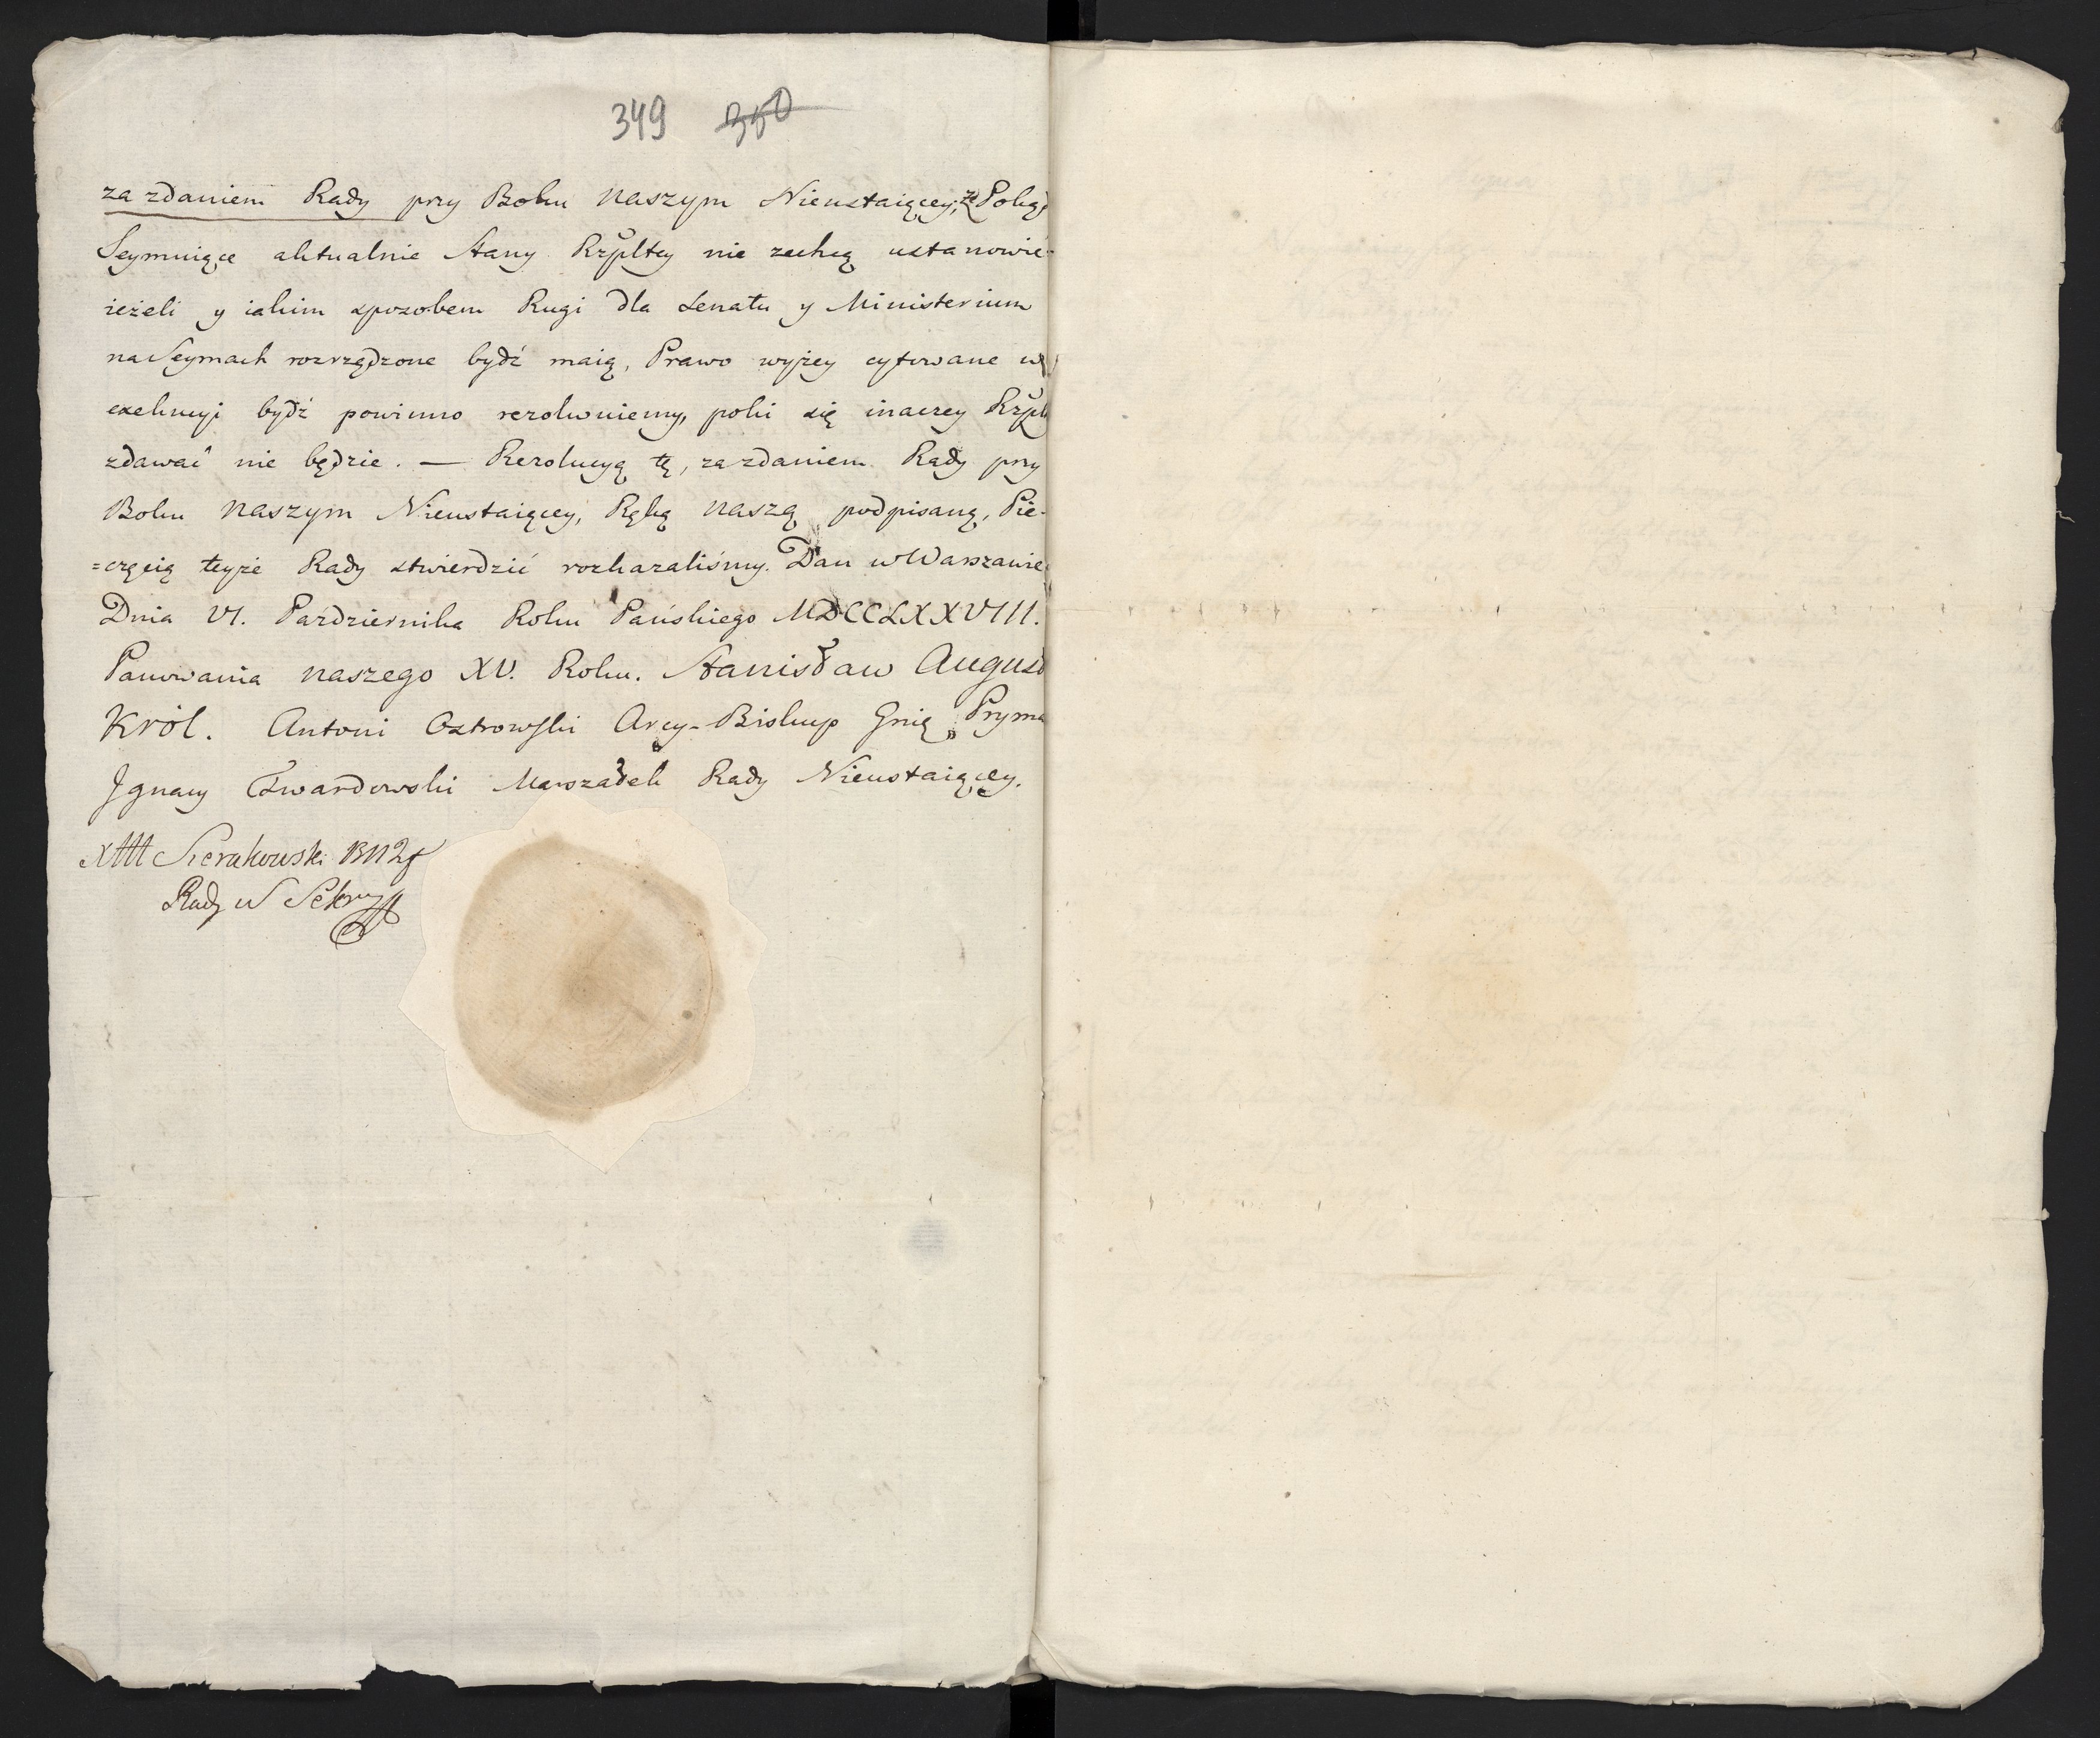 349 350
za zdaniem Rady przy Boku naszym Nieustaiącey, że Poki
Seymuiące aktualnie Stany Rzpltey nie zechcą ustanowić
ieżeli y iakim sposobem Rugi dla Senatu y Ministerium
na Seymach rozrządzone bydź maią, Prawo wyżey cytowane w
exekucyi bydź powinno rezolwuiemy, poki się inaczey Rzplt
zdawać nie będzie. — Rezolucyą tę, za zdaniem Rady przy
Boku naszym Nieustaiącey, Ręką naszą podpisaną, Pie-
=częcią teyże Rady stwierdzić rozkazaliśmy. Dan w Warszawie
Dnia VI. Października Roku Pańskiego MDCCLXXVIII.
Panowania naszego XV. Roku. Stanisław August
Król. Antoni Ostrowski Arcy-Biskup Gnię Pryma
Ignacy Twardowski Marszałek Rady Nieustaiącey.
Sierakowski
Rady N Sekr